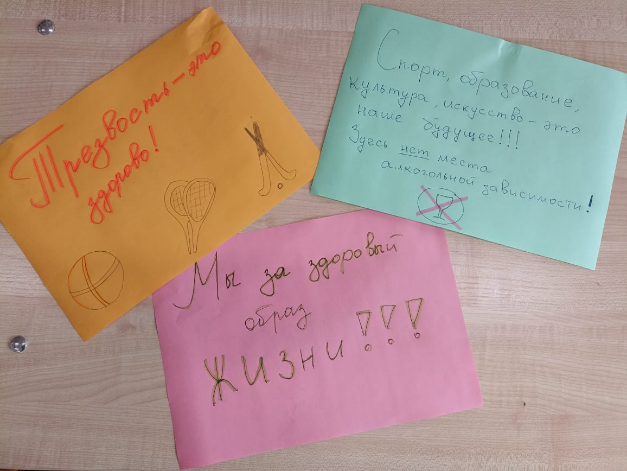 Трезвость - это
здорово!
Спорт, образование,
культура, искусство - это
наше будущее!!!
Здесь нет места
алкогольной зависимости!
Мы за здоровый
образ
жизни!!!